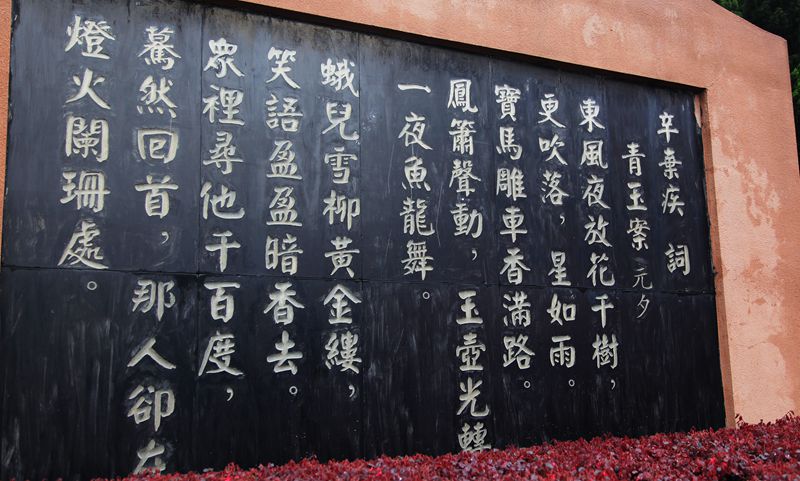 辛棄疾 詞
青玉案 元夕
東風夜放花千樹，
更吹落，星如雨。
寶馬雕車香滿路。
鳳簫聲動，玉壺光轉
一夜魚龍舞。
蛾兒雪柳黃金縷，
笑語盈盈暗香去。
眾裡尋他千百度，
驀然回首，那人卻在
燈火闌珊處。